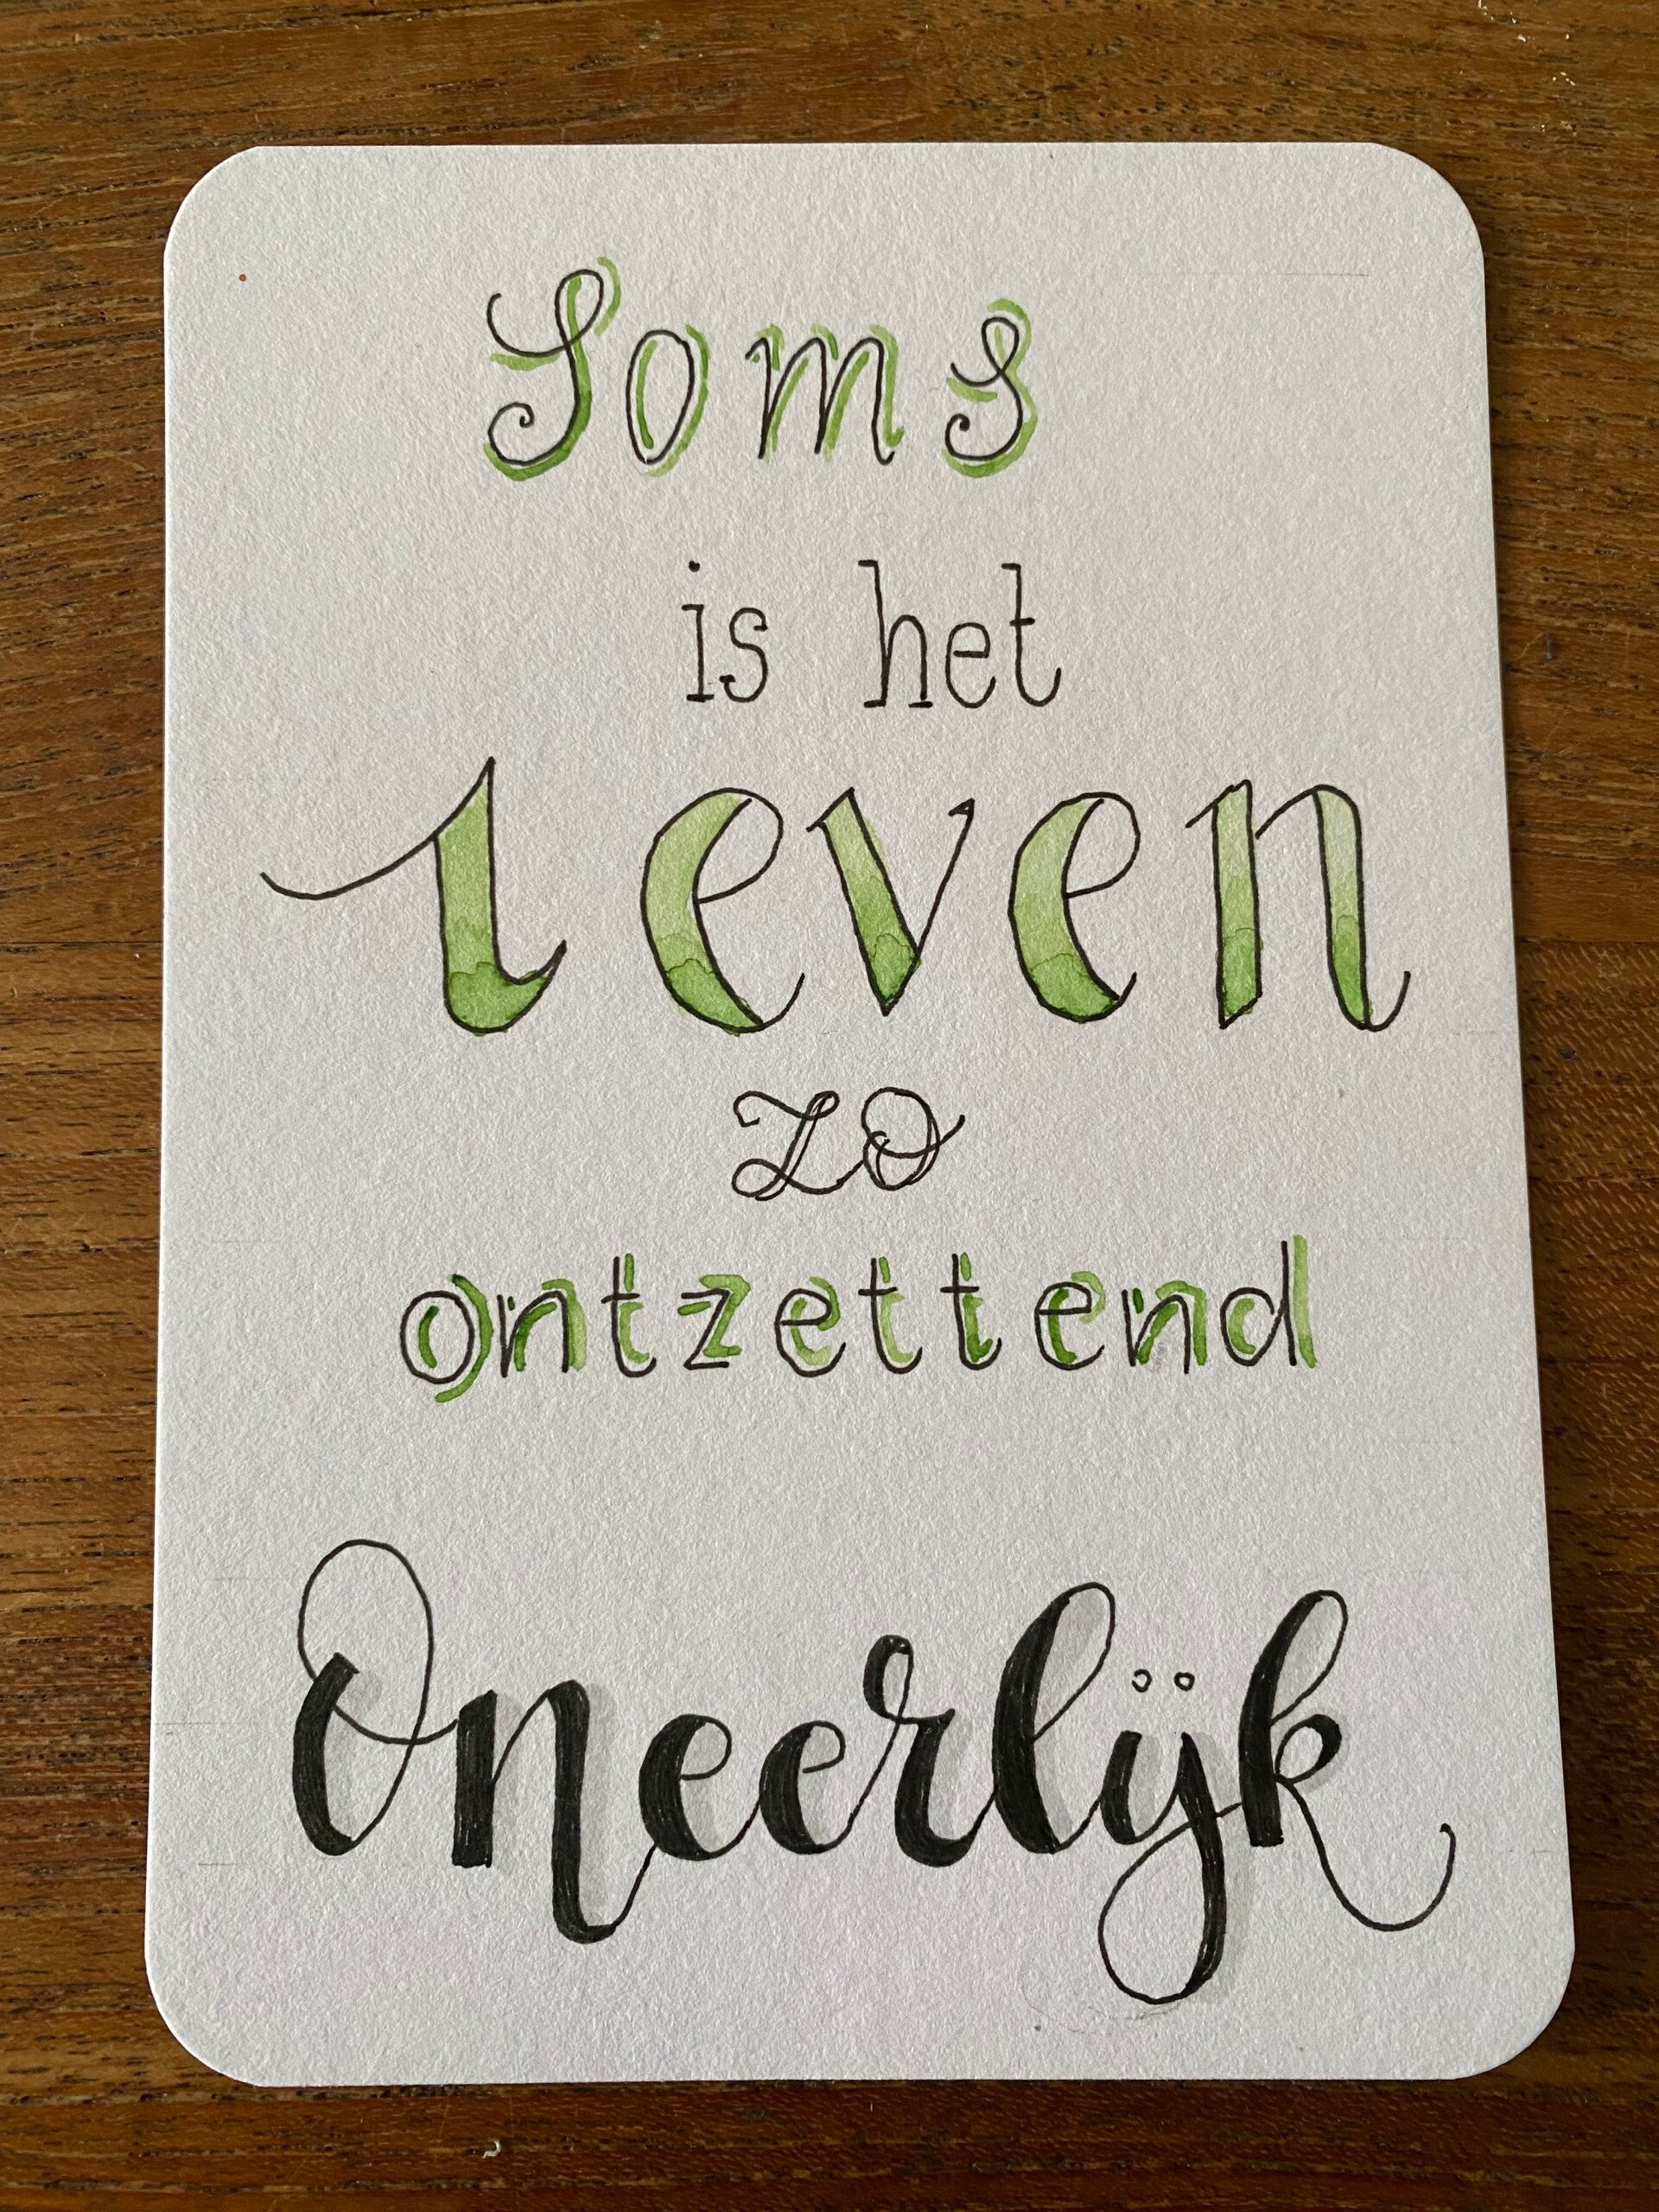 Soms
is het
leven
zo
ontzettend
Oneerlijk